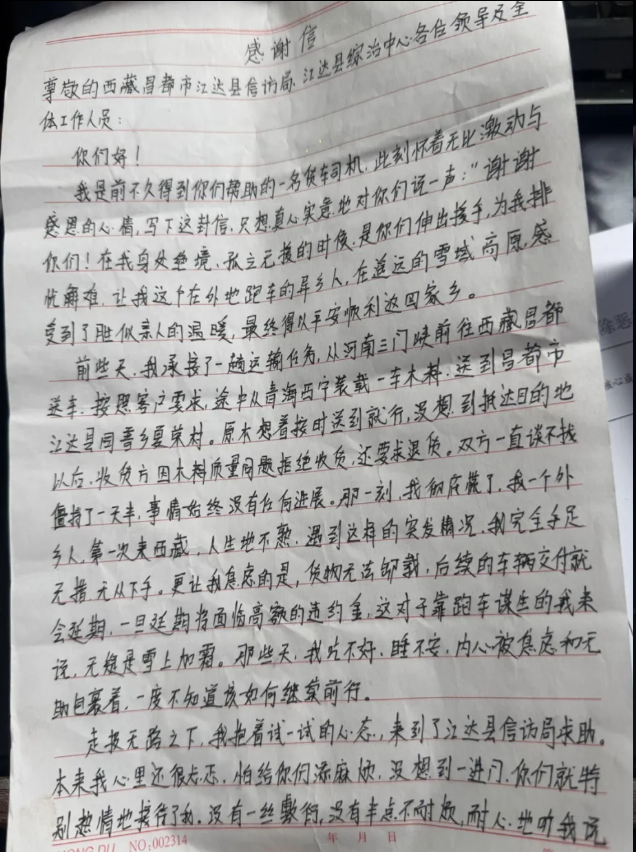 感谢信
尊敬的西藏昌都市江达县信访局、江达县综治中心各位领导及全
体工作人员：
你们好！
我是前不久得到你们帮助的一名货车司机，此刻怀着无比激动与
感恩的心情，写下这封信，只想真心实意地对你们说一声：“谢谢
你们！在我身处绝境、孤立无援的时候，是你们伸出援手，为我排
忧解难，让我这个在外地跑车的异乡人，在遥远的雪域高原，感
受到了胜似亲人的温暖，最终得以平安顺利返回家乡。
前些天，我承接了一趟运输任务，从河南三门峡前往西藏昌都
送车，按照客户要求，途中从青海西宁装载一车木料，送到昌都市
江达县同普乡夏荣村。原本想着按时送到就行，没想到抵达目的地
以后，收货方因木料质量问题拒绝收货，还要求退货。双方一直谈不拢
僵持了一天半，事情始终没有任何进展。那一刻，我彻底慌了，我一个外
乡人，第一次来西藏，人生地不熟，遇到这样的突发情况，我完全手足
无措，无从下手。更让我焦虑的是，货物无法卸载，后续的车辆交付就
会延期，一旦延期将面临高额的违约金，这对于靠跑车谋生的我来
说，无疑是雪上加霜。那些天，我吃不好、睡不安，内心被焦虑和无
助包裹着，一度不知道该如何继续前行。
走投无路之下，我抱着试一试的心态，来到了江达县信访局求助。
本来我心里还很忐忑，怕给你们添麻烦，没想到一进门，你们就特
别热情地接待了我。没有一丝敷衍，没有半点不耐烦，耐心地听我说
NO:002314 年 月 日